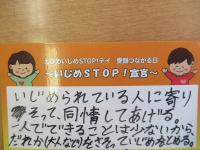 いじめSTOP!デイ
～いじめSTOP!宣言～
いじめられている人に寄り
そって、同情してあげる。
一人でできることは少ないから、
だれか(大人など)をさそっていじめをとめる。